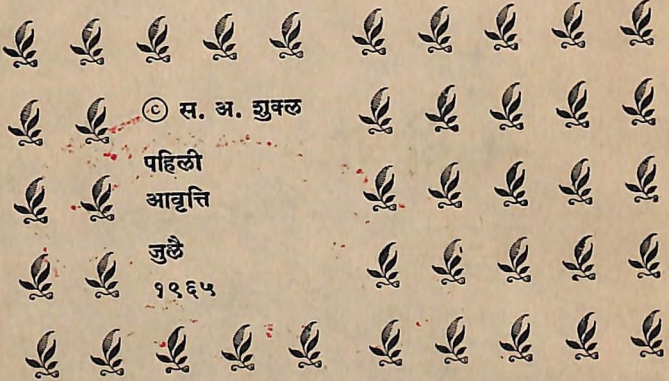 © स. अ. शुक्ल
पहिली
आवृत्ति
जुलै
१९६५